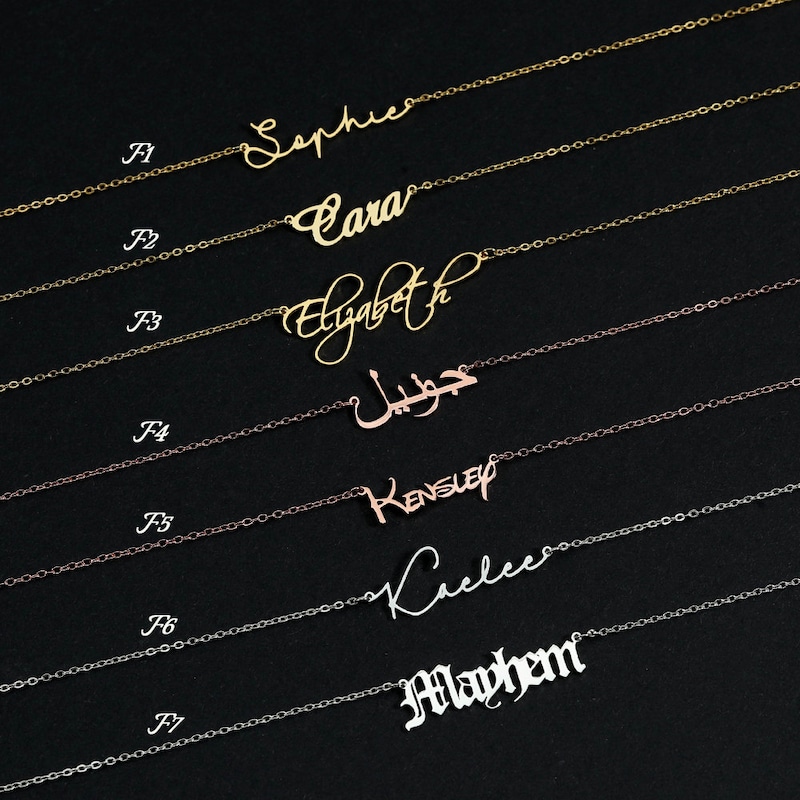 F1 Sophie
F2 Cara
F3 Elizabeth
F4 جونيل
F5 KENSLEY
F6 Kaelee
F7 Mayhem